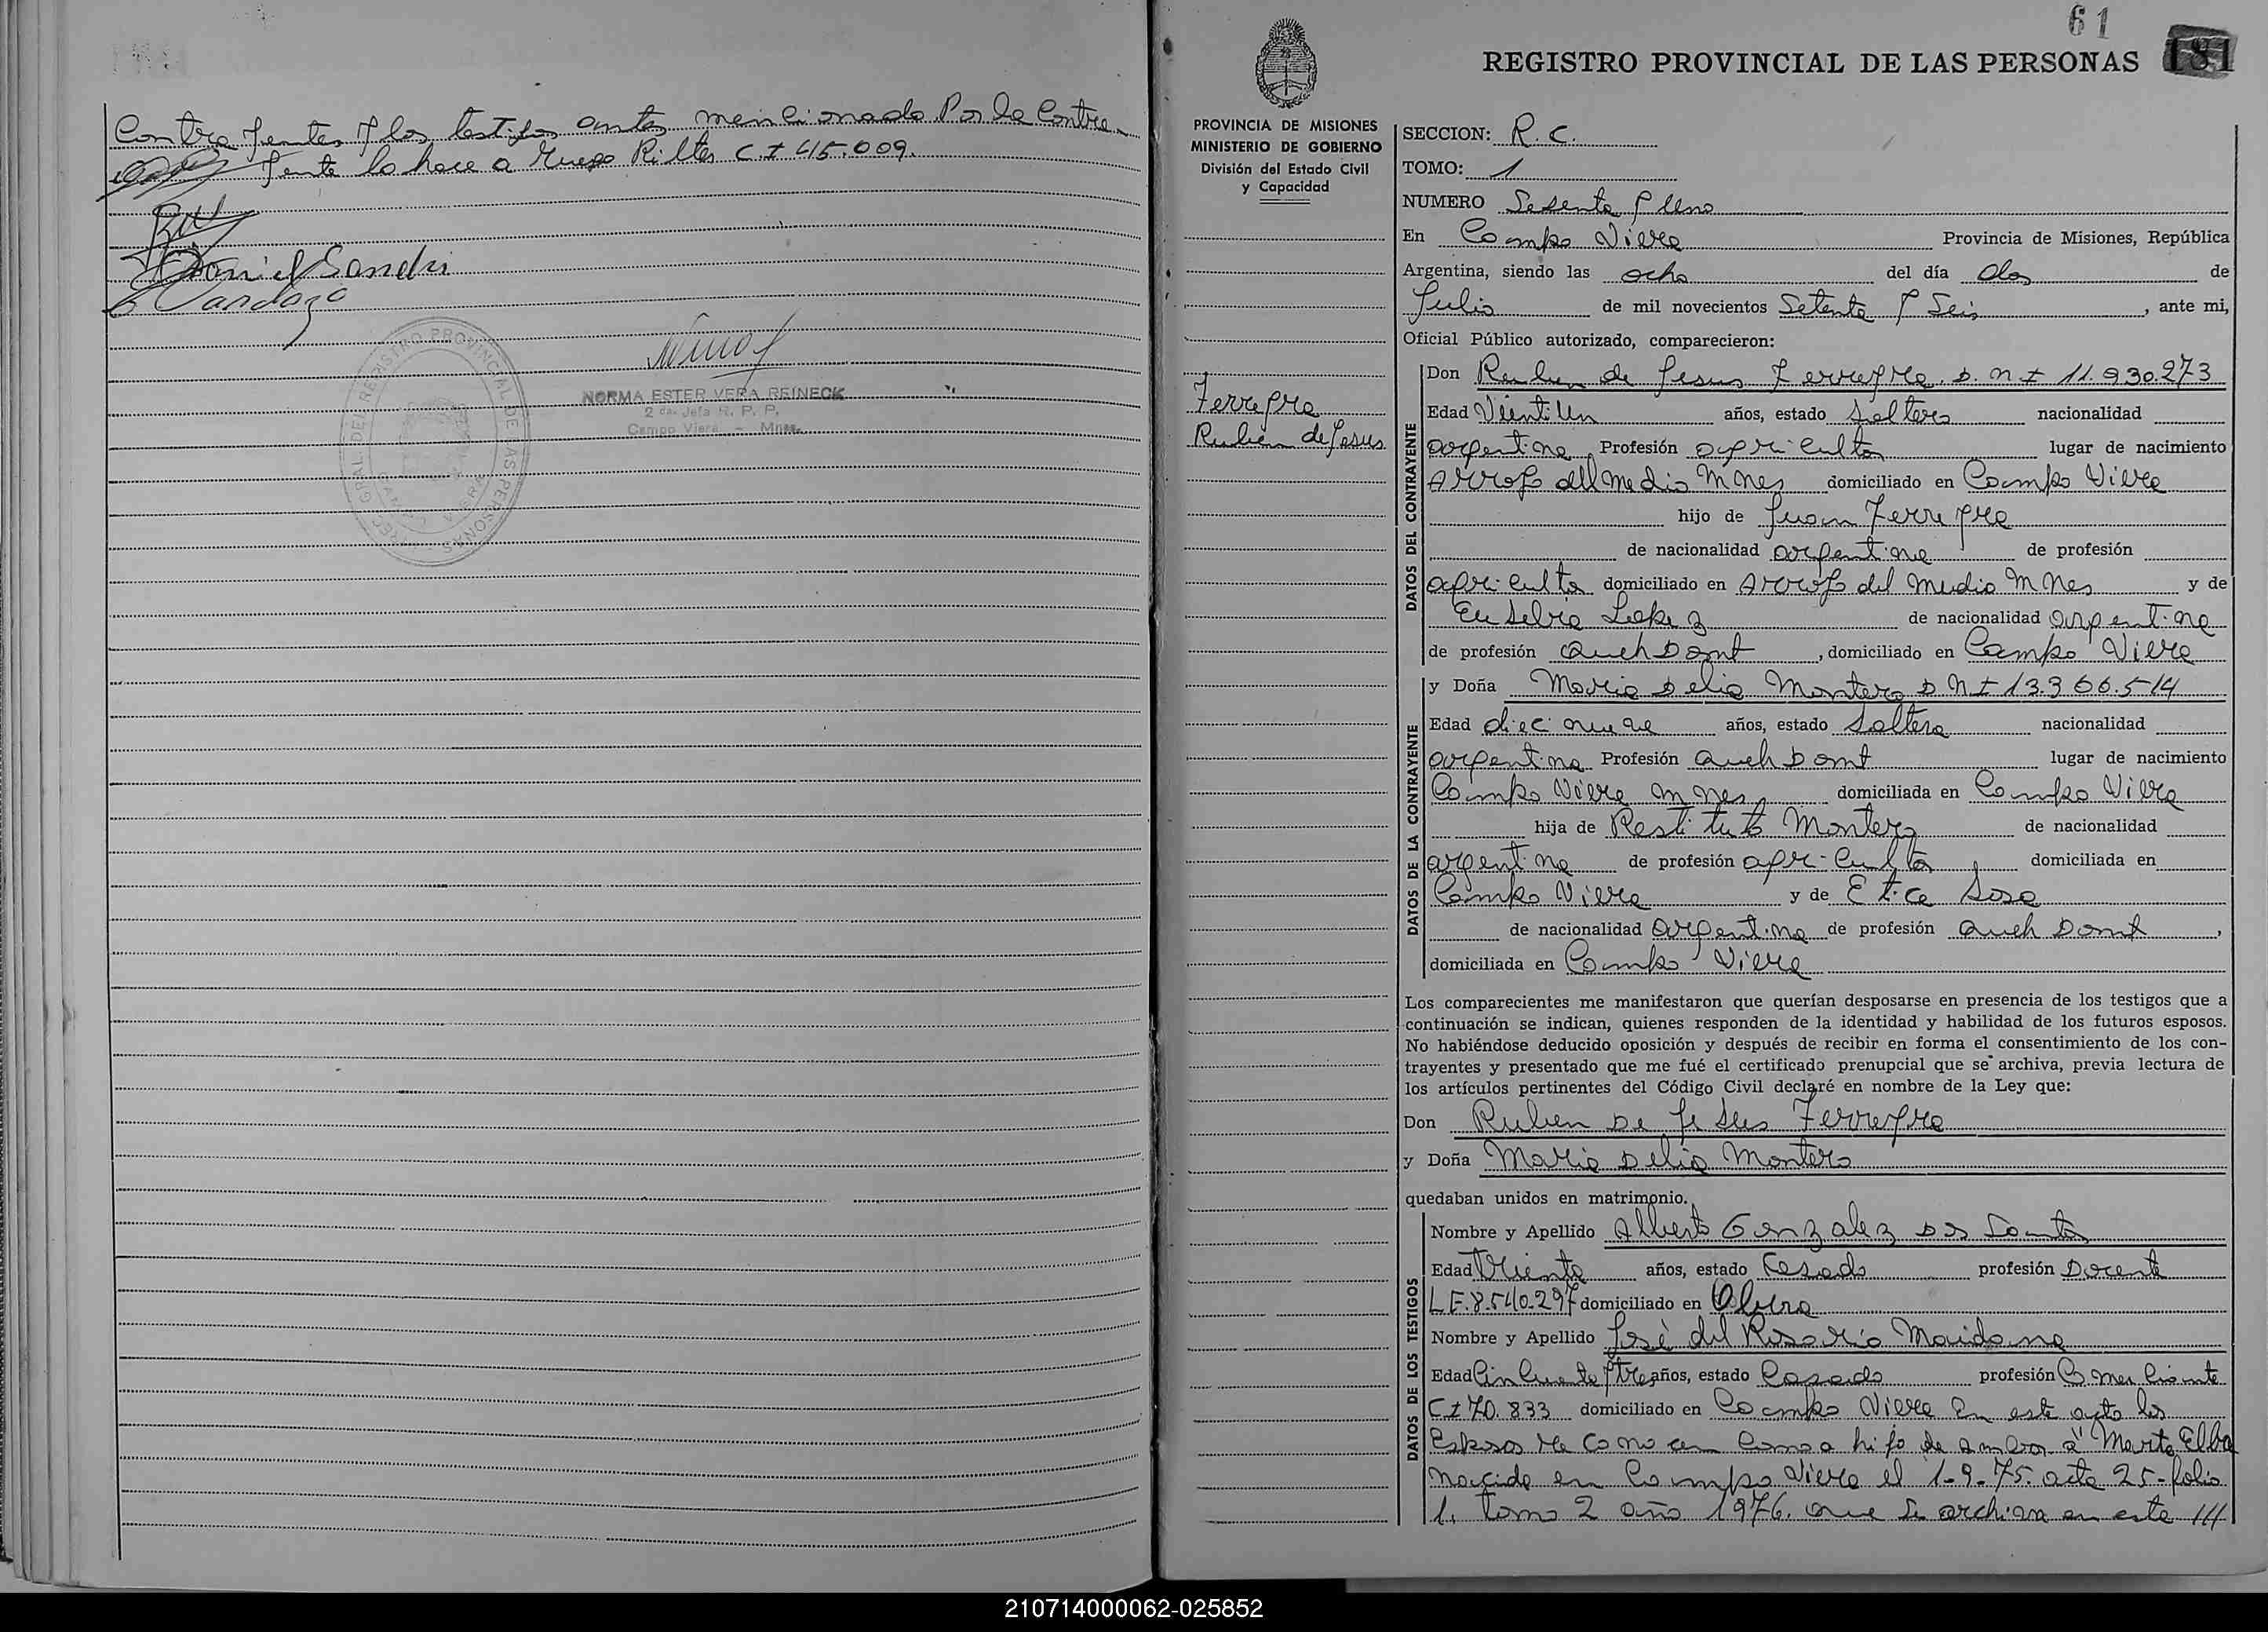 Contrayentes y los testigos antes mencionado Por la Contra-
yente lo hace a ruego Riltes C.I 415.009.
Daniel Sandri
Cardozo
REGISTRO PROVINCIAL DE LAS PERSONAS
NORMA ESTER VERA REINECK
2 da. Jefa R. P. P.
Campo Viera - Mnes.
61
REGISTRO PROVINCIAL DE LAS PERSONAS 181
PROVINCIA DE MISIONES
MINISTERIO DE GOBIERNO
División del Estado Civil
y Capacidad
Ferreyra
Ruben de Jesus
SECCION: R. C.
TOMO: 1
NUMERO Sesenta y Uno
En Campo Viera Provincia de Misiones, República
Argentina, siendo las ocho del día dos de
Julio de mil novecientos Setenta y Seis, ante mi,
Oficial Público autorizado, comparecieron:
DATOS DEL CONTRAYENTE
Don Ruben de Jesus Ferreyra. D. N I 11.930.273
Edad Vientiun años, estado Soltero nacionalidad
argentina Profesión agriculto lugar de nacimiento
Arroyo del medio Mnes domiciliado en Campo Viera
hijo de Juan Ferreyra
de nacionalidad argentina de profesión
agriculto domiciliado en Arroyo del medio Mnes y de
Eusebia Lopez de nacionalidad argentina
de profesión Queh Domt, domiciliado en Campo Viera
DATOS DE LA CONTRAYENTE
y Doña Maria Delia Montero D N I 13.366.514
Edad diecinueve años, estado Soltera nacionalidad
argentina Profesión Queh Domt lugar de nacimiento
Campo Viera Mnes, domiciliada en Campo Viera
hija de Restituto Montero de nacionalidad
argentina de profesión agriculto domiciliada en
Campo Viera y de Sosa
de nacionalidad argentina de profesión Queh Domt,
domiciliada en Campo Viera
Los comparecientes me manifestaron que querían desposarse en presencia de los testigos que a
continuación se indican, quienes responden de la identidad y habilidad de los futuros esposos.
No habiéndose deducido oposición y después de recibir en forma el consentimiento de los con-
trayentes y presentado que me fué el certificado prenupcial que se archiva, previa lectura de
los artículos pertinentes del Código Civil declaré en nombre de la Ley que:
Don Ruben De Jesus Ferreyra
y Doña Maria Delia Montero
quedaban unidos en matrimonio.
DATOS DE LOS TESTIGOS
Nombre y Apellido Alberto Gonzalez Dos Santos
Edad Trienta años, estado Casado profesión Docente
L E. 8.540.297 domiciliado en Obera
Nombre y Apellido José del Rosario Maidana
Edad Cincuenta y tres años, estado Casado profesión Comerciante
C I 70.833 domiciliado en Campo Viera En este acto los
Esposos reconocen como a hijo de ambos a" Marta Elba
nacida en Campo Viera el 1-9-75. acta 25-folio
1. tomo 2 año 1976. que se archiva en este ///
210714000062-025852